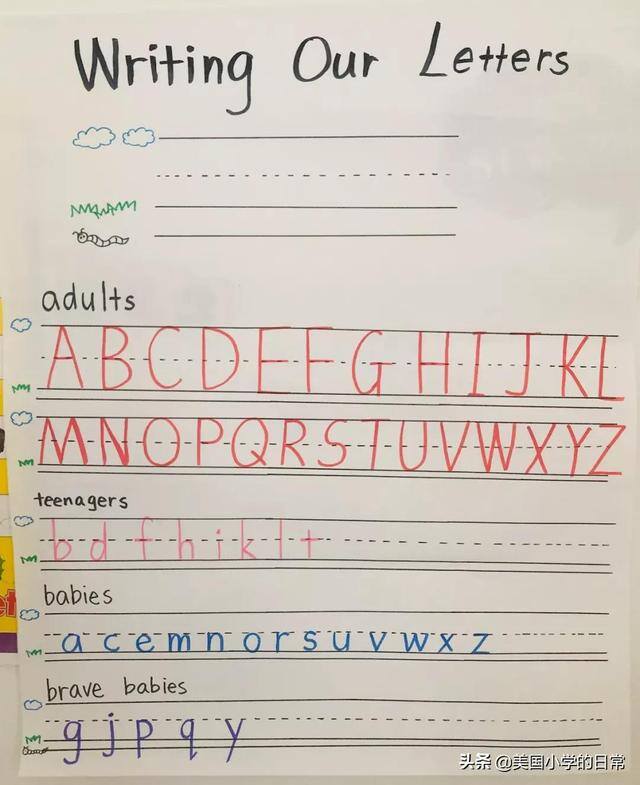 Writing Our Letters
adults
ABCDEFGHIJKL
MNOPQRSTUVWXYZ
teenagers
b d f h i k l t
babies
a c e m n o r s u v w x z
brave babies
g j p q y
头条 @美国小学的日常